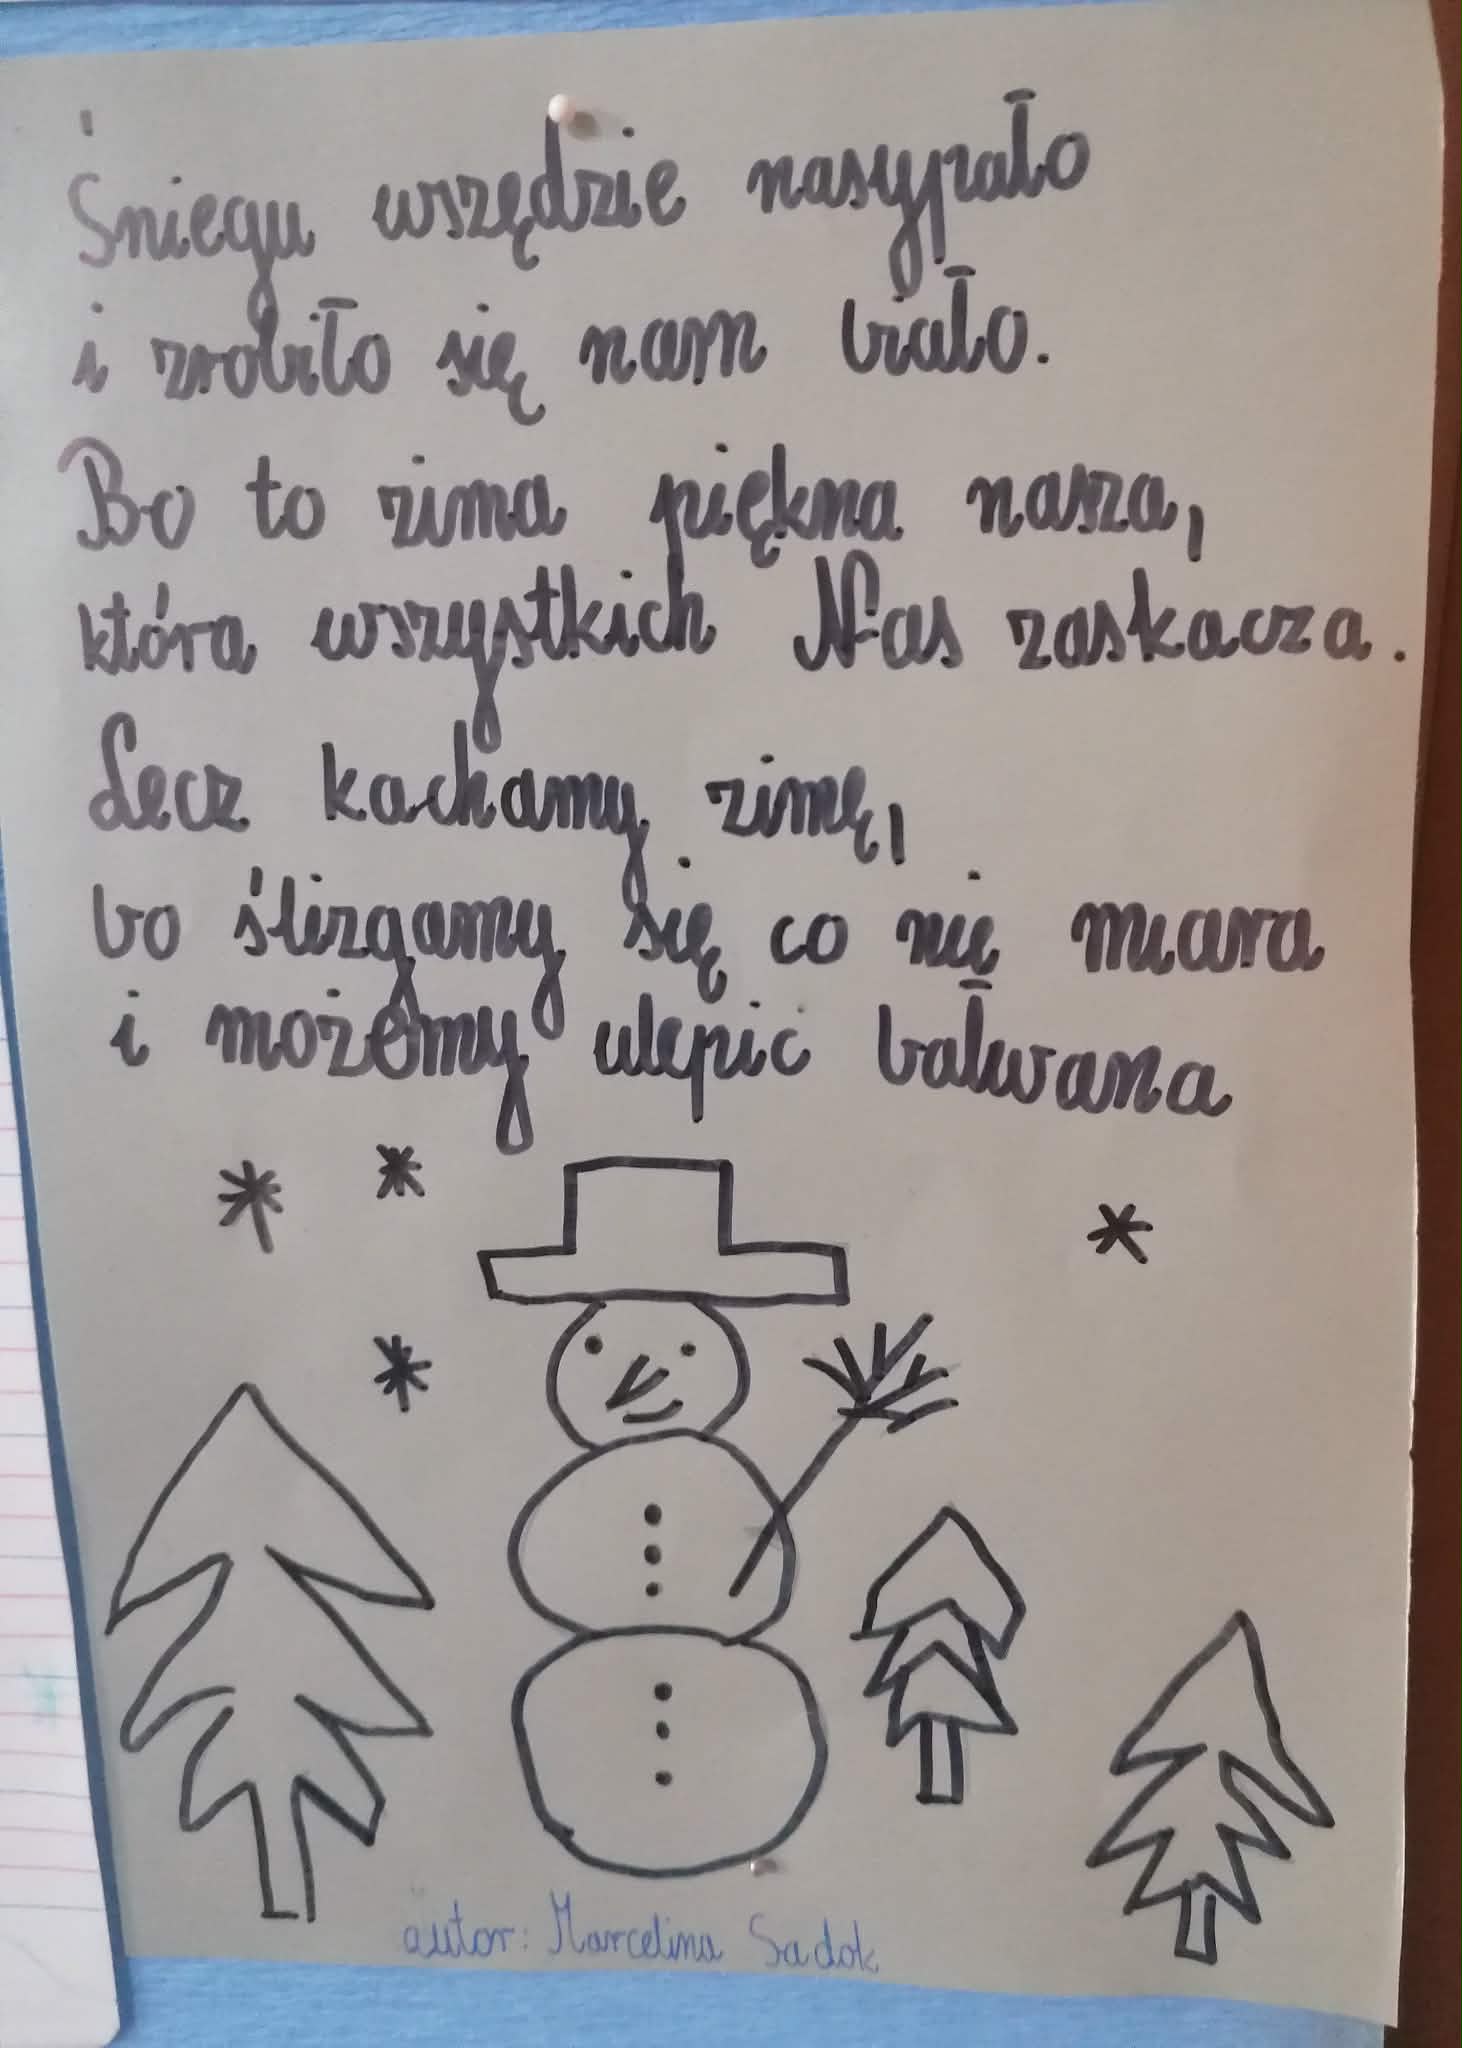 Śniegu wszędzie nasypało
i zrobiło się nam biało.
Bo to zima piękna nasza,
która wszystkich Nas zaskacza.
Lecz kochamy zimę,
bo ślizgamy się co nie miara
i możemy ulepić bałwana
autor: Marcelina Sadok